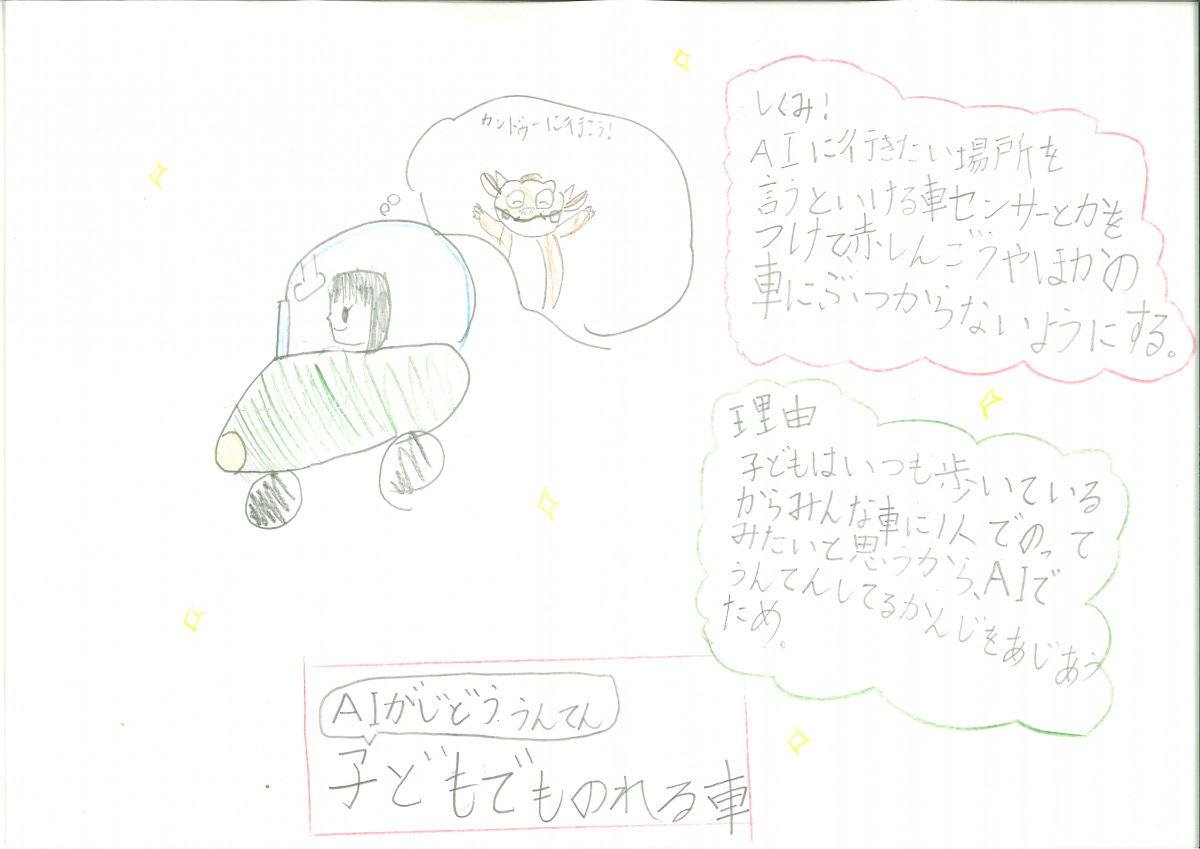 カンドゥーに行こう!
しくみ!
AIに行きたい場所を
言うといける車センサーとかを
つけて、赤しんごうやほかの
車にぶつからないようにする。
理由
子どもはいつも歩いている
からみんな車に1人でのって
みたいと思うから、AIで
うんてんしてるかんじをあじあう
ため。
AIがじどううんてん
子どもでものれる車